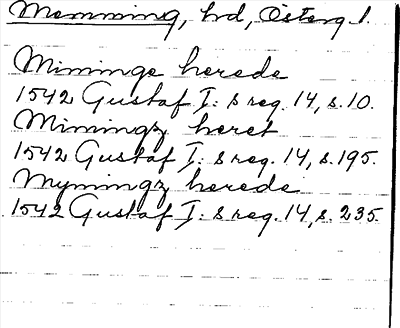 Memming, hd, Österg. l.
Mininge herede
1542 Gustaf I: s reg. 14, s. 10.
Miningz heret
1542 Gustaf I: s reg. 14, s. 195.
Mymingz herede
1542 Gustaf I: s reg. 14, s. 235.